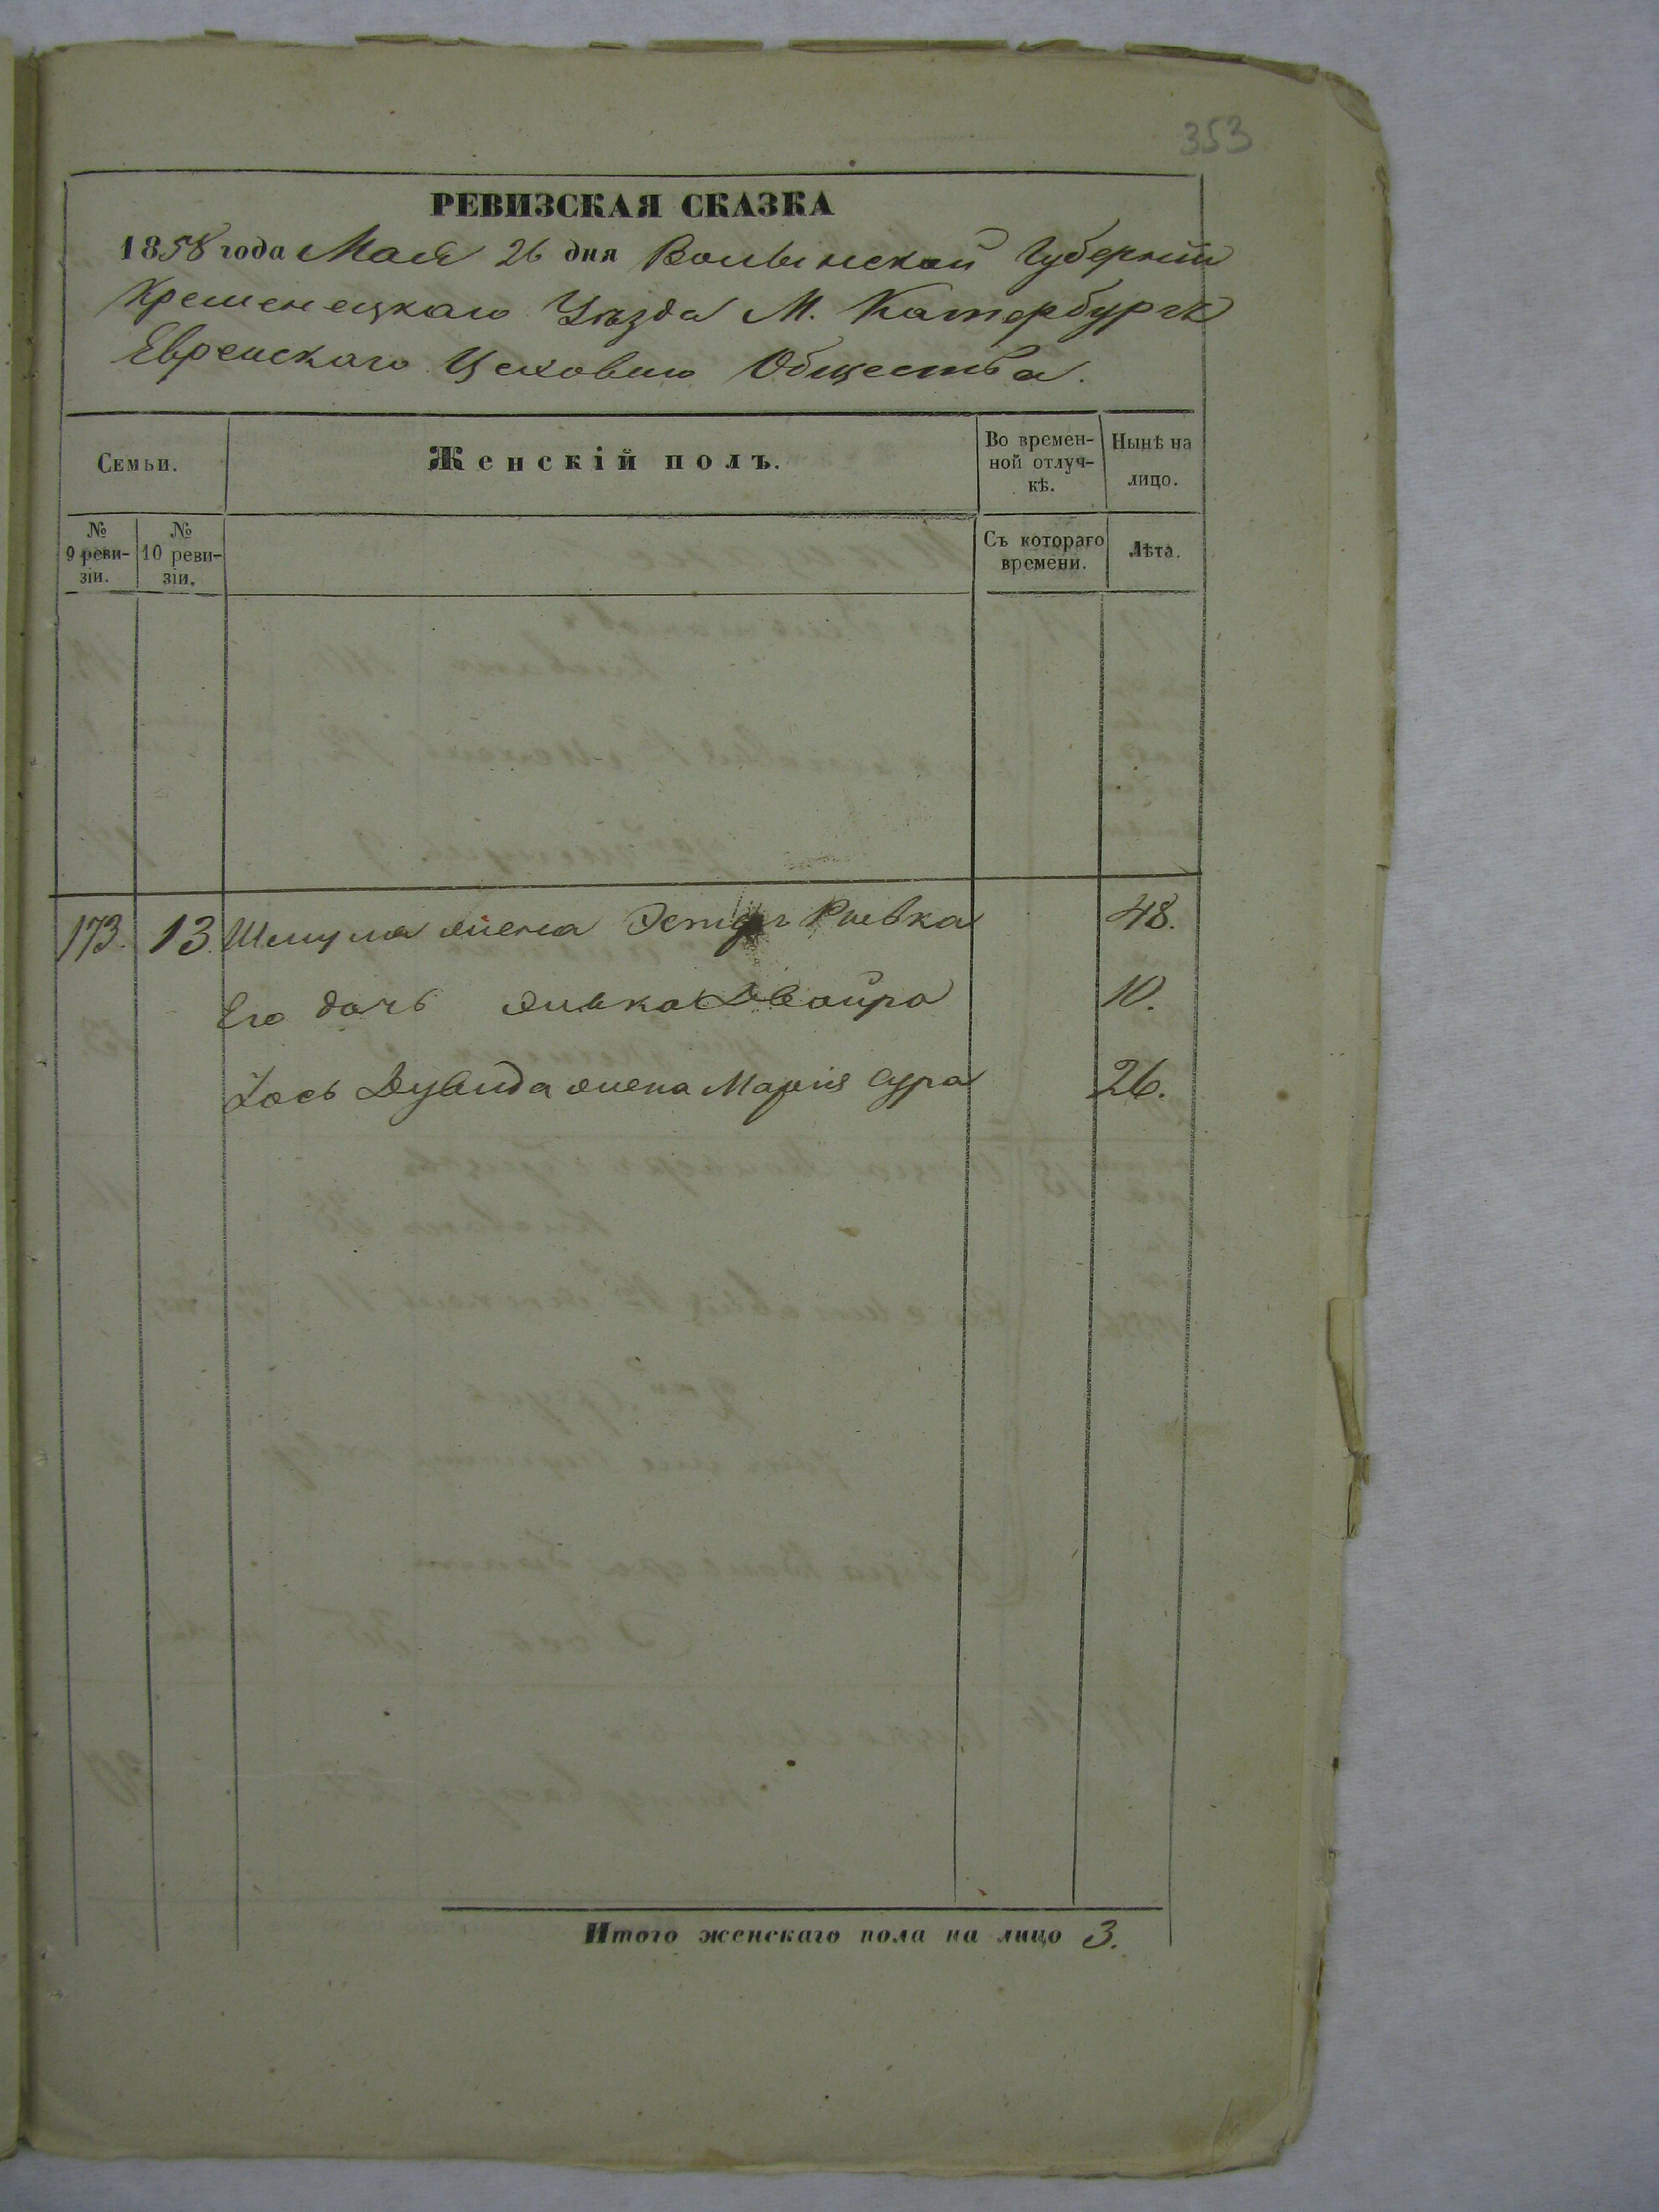 353
РЕВИЗСКАЯ СКАЗКА
1858 года Мая 26 дня Волынской Губернии
Кременецкаго Уѣзда М. Катербурга
Еврейскаго Цеховаго Общества.
Семьи.
Женскій полъ.
Во времен-
ной отлуч-
кѣ.
Нынѣ на
лицо.
№
9 реви-
зіи.
№
10 реви-
зіи.
Съ котораго
времени.
Лѣта.
173. 13. Шмуля жена Эстеръ Ривка 48.
Его дочь Двойра 10.
жена Марія Сура 26.
Итого женскаго пола на лицо 3.